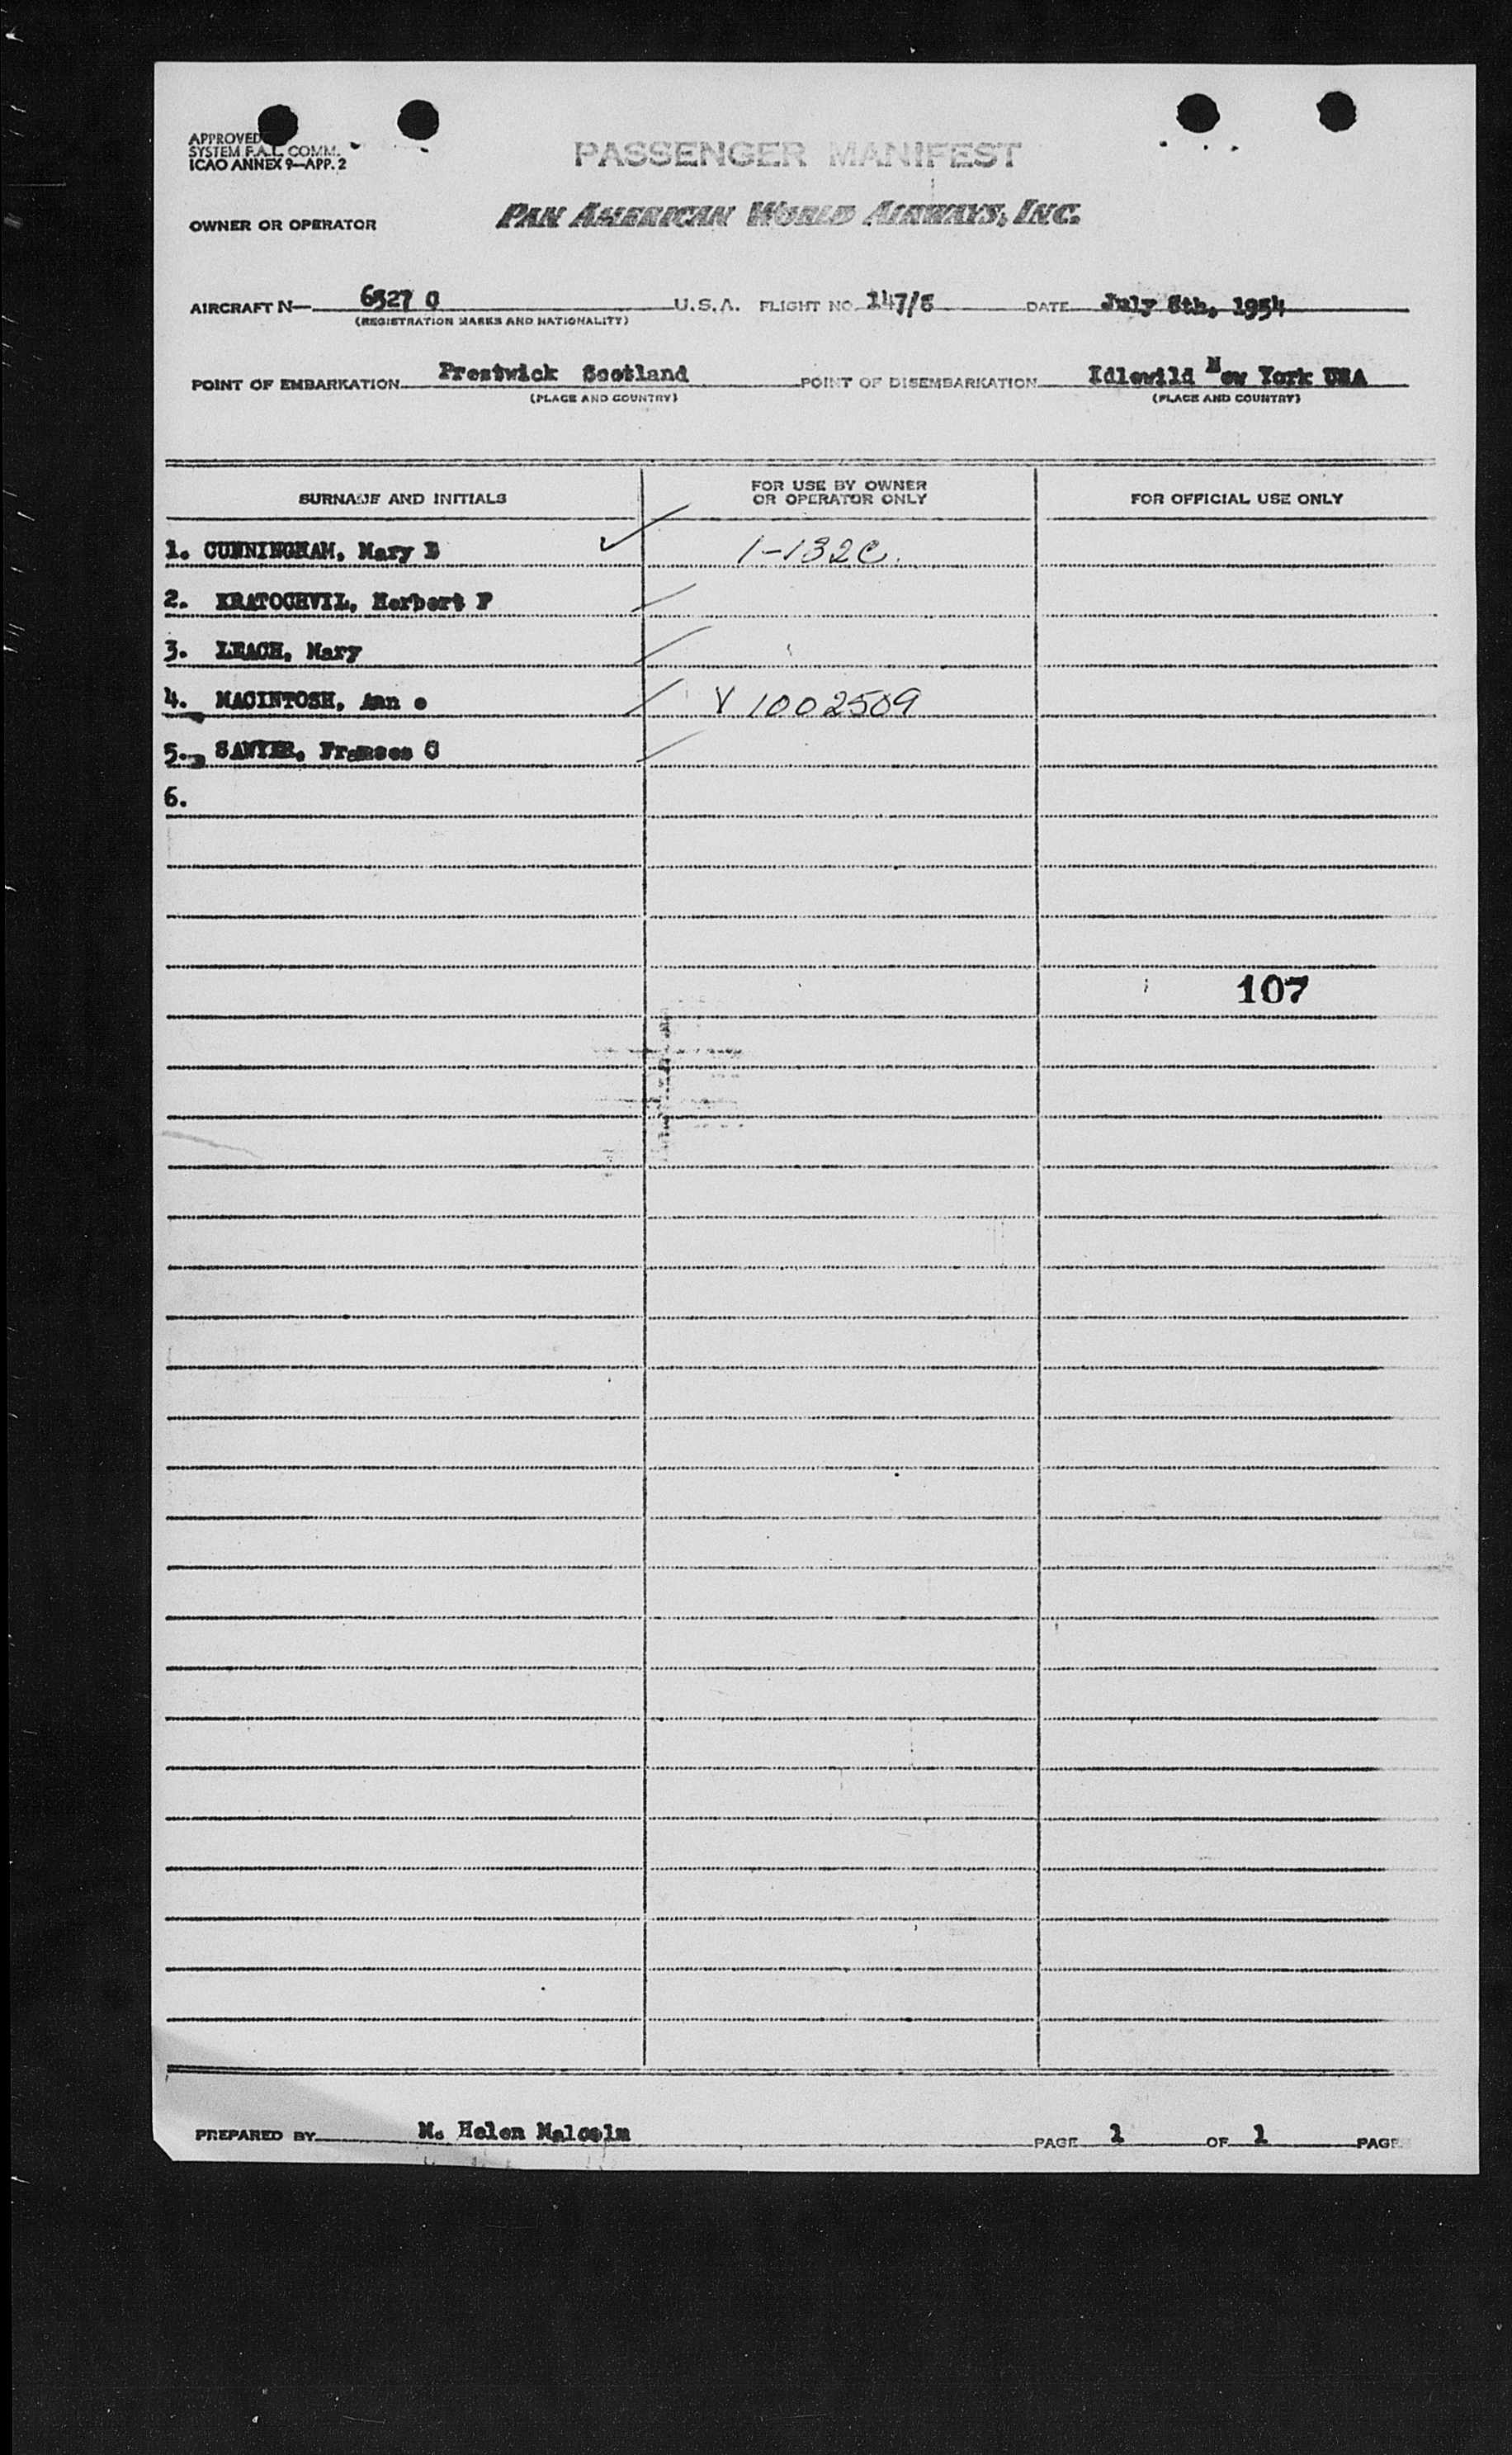 APPROVED
SYSTEM F.A.L. COMM.
ICAO ANNEX 9—APP. 2
PASSENGER MANIFEST
OWNER OR OPERATOR PAN AMERICAN WORLD AIRWAYS, INC.
AIRCRAFT N— U.S.A. FLIGHT NO. DATE July 8th, 1954
(REGISTRATION MARKS AND NATIONALITY)
POINT OF EMBARKATION Prestwick Scotland POINT OF DISEMBARKATION Idlewild New York USA
(PLACE AND COUNTRY) (PLACE AND COUNTRY)
SURNAME AND INITIALS FOR USE BY OWNER OR OPERATOR ONLY FOR OFFICIAL USE ONLY
1. CUNNINGHAM, Mary B 1-132C.
2. KRATOCHVIL, Herbert F
3. LEACH, Mary
4. MACINTOSH, Ann e V 1002509
5. SAWYER, Frances C
6.
107
PREPARED BY M. Helen Malcolm PAGE 1 OF 1 PAGES